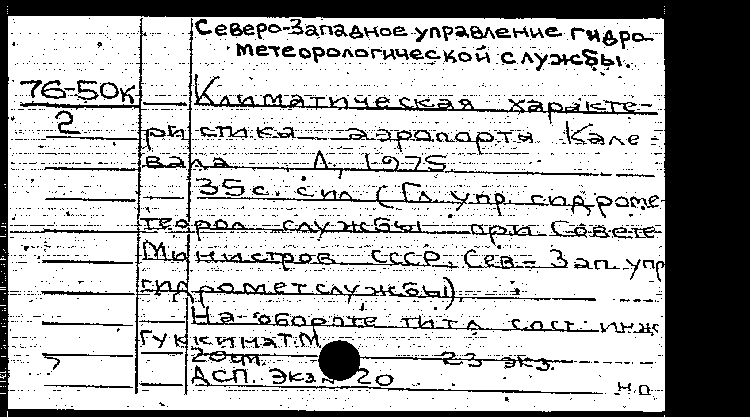 Северо-Западное управление гидро-
метеорологической службы.
76-50к
Климатическая характе-
2
ристика аэропорта Кале-
вала Л, 1975
35 с. с ил (Гл. упр. гидроме-
теорол службы при Совете
Министров СССР. Сев-Зап. упр
гидрометслужбы)
На обороте тит л сост: инж
Гуккина Т.М
20 см. 23 экз.
АСП. Экз. 20
Н.П